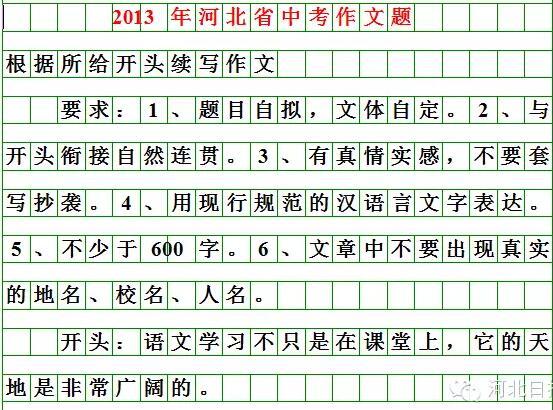 2013 年河北省中考作文题
根据所给开头续写作文
要求：1、题目自拟，文体自定。2、与
开头衔接自然连贯。3、有真情实感，不要套
写抄袭。4、用现行规范的汉语言文字表达。
5、不少于 600 字。6、文章中不要出现真实
的地名、校名、人名。
开头：语文学习不只是在课堂上，它的天
地是非常广阔的。
河北日